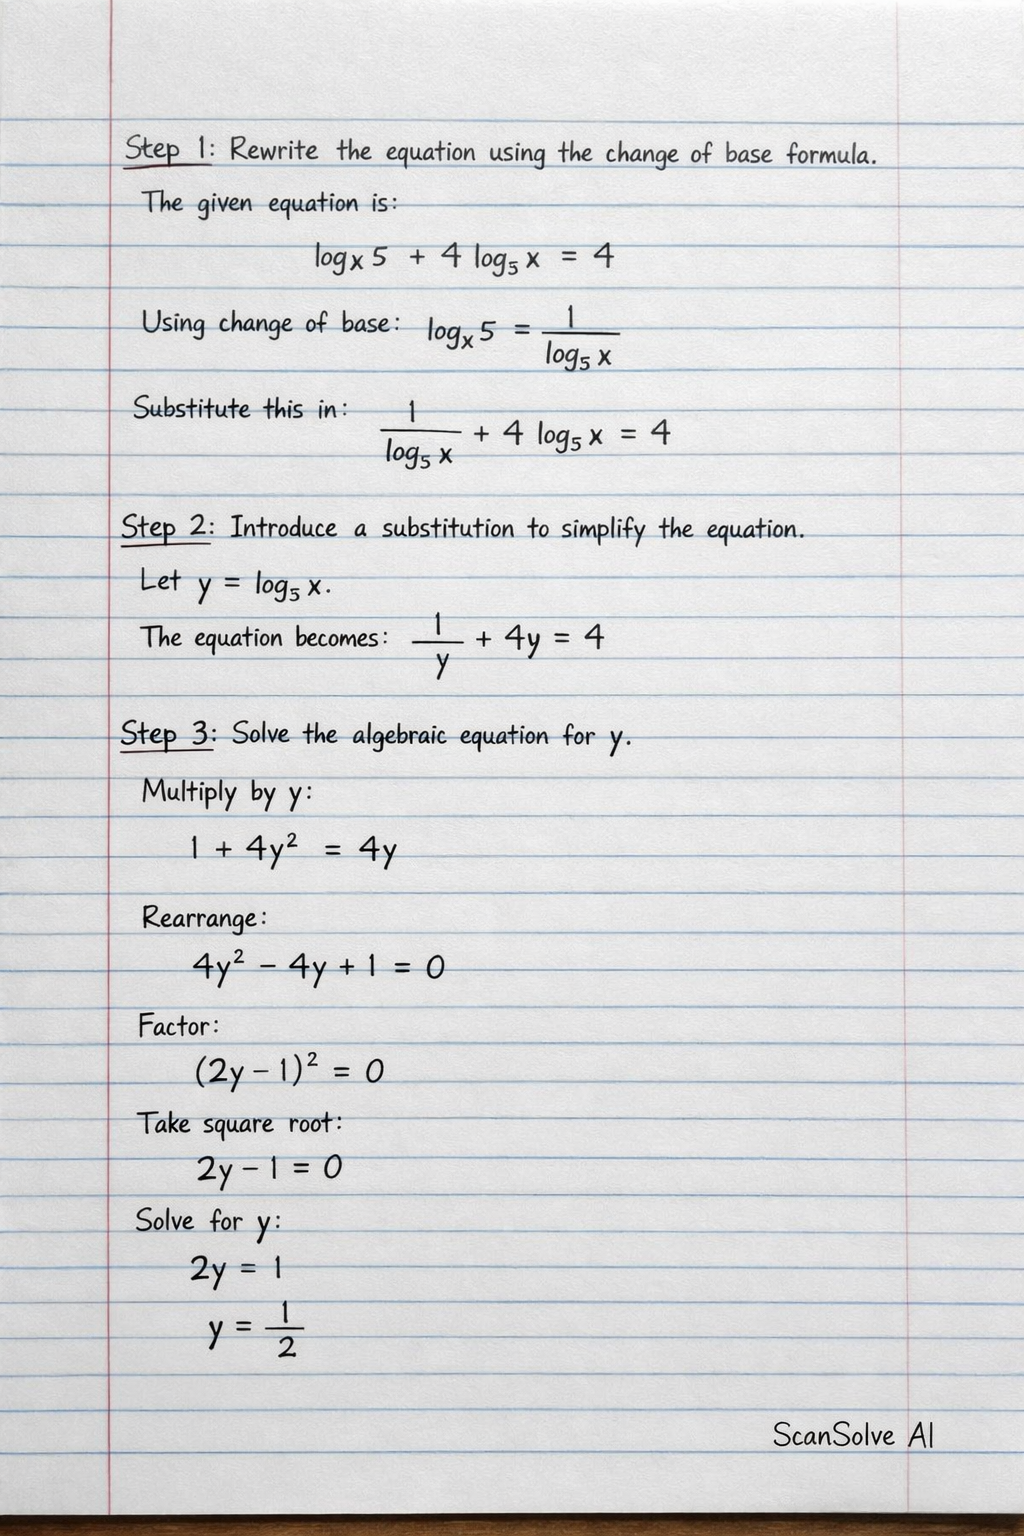 Step 1: Rewrite the equation using the change of base formula.
The given equation is:
logₓ 5 + 4 log₅ x = 4
Using change of base: logₓ 5 = 1/(log₅ x)
Substitute this in: 1/(log₅ x) + 4 log₅ x = 4
Step 2: Introduce a substitution to simplify the equation.
Let y = log₅ x.
The equation becomes: 1/y + 4y = 4
Step 3: Solve the algebraic equation for y.
Multiply by y:
1 + 4y² = 4y
Rearrange:
4y² − 4y + 1 = 0
Factor:
(2y − 1)² = 0
Take square root:
2y − 1 = 0
Solve for y:
2y = 1
y = 1/2
ScanSolve AI